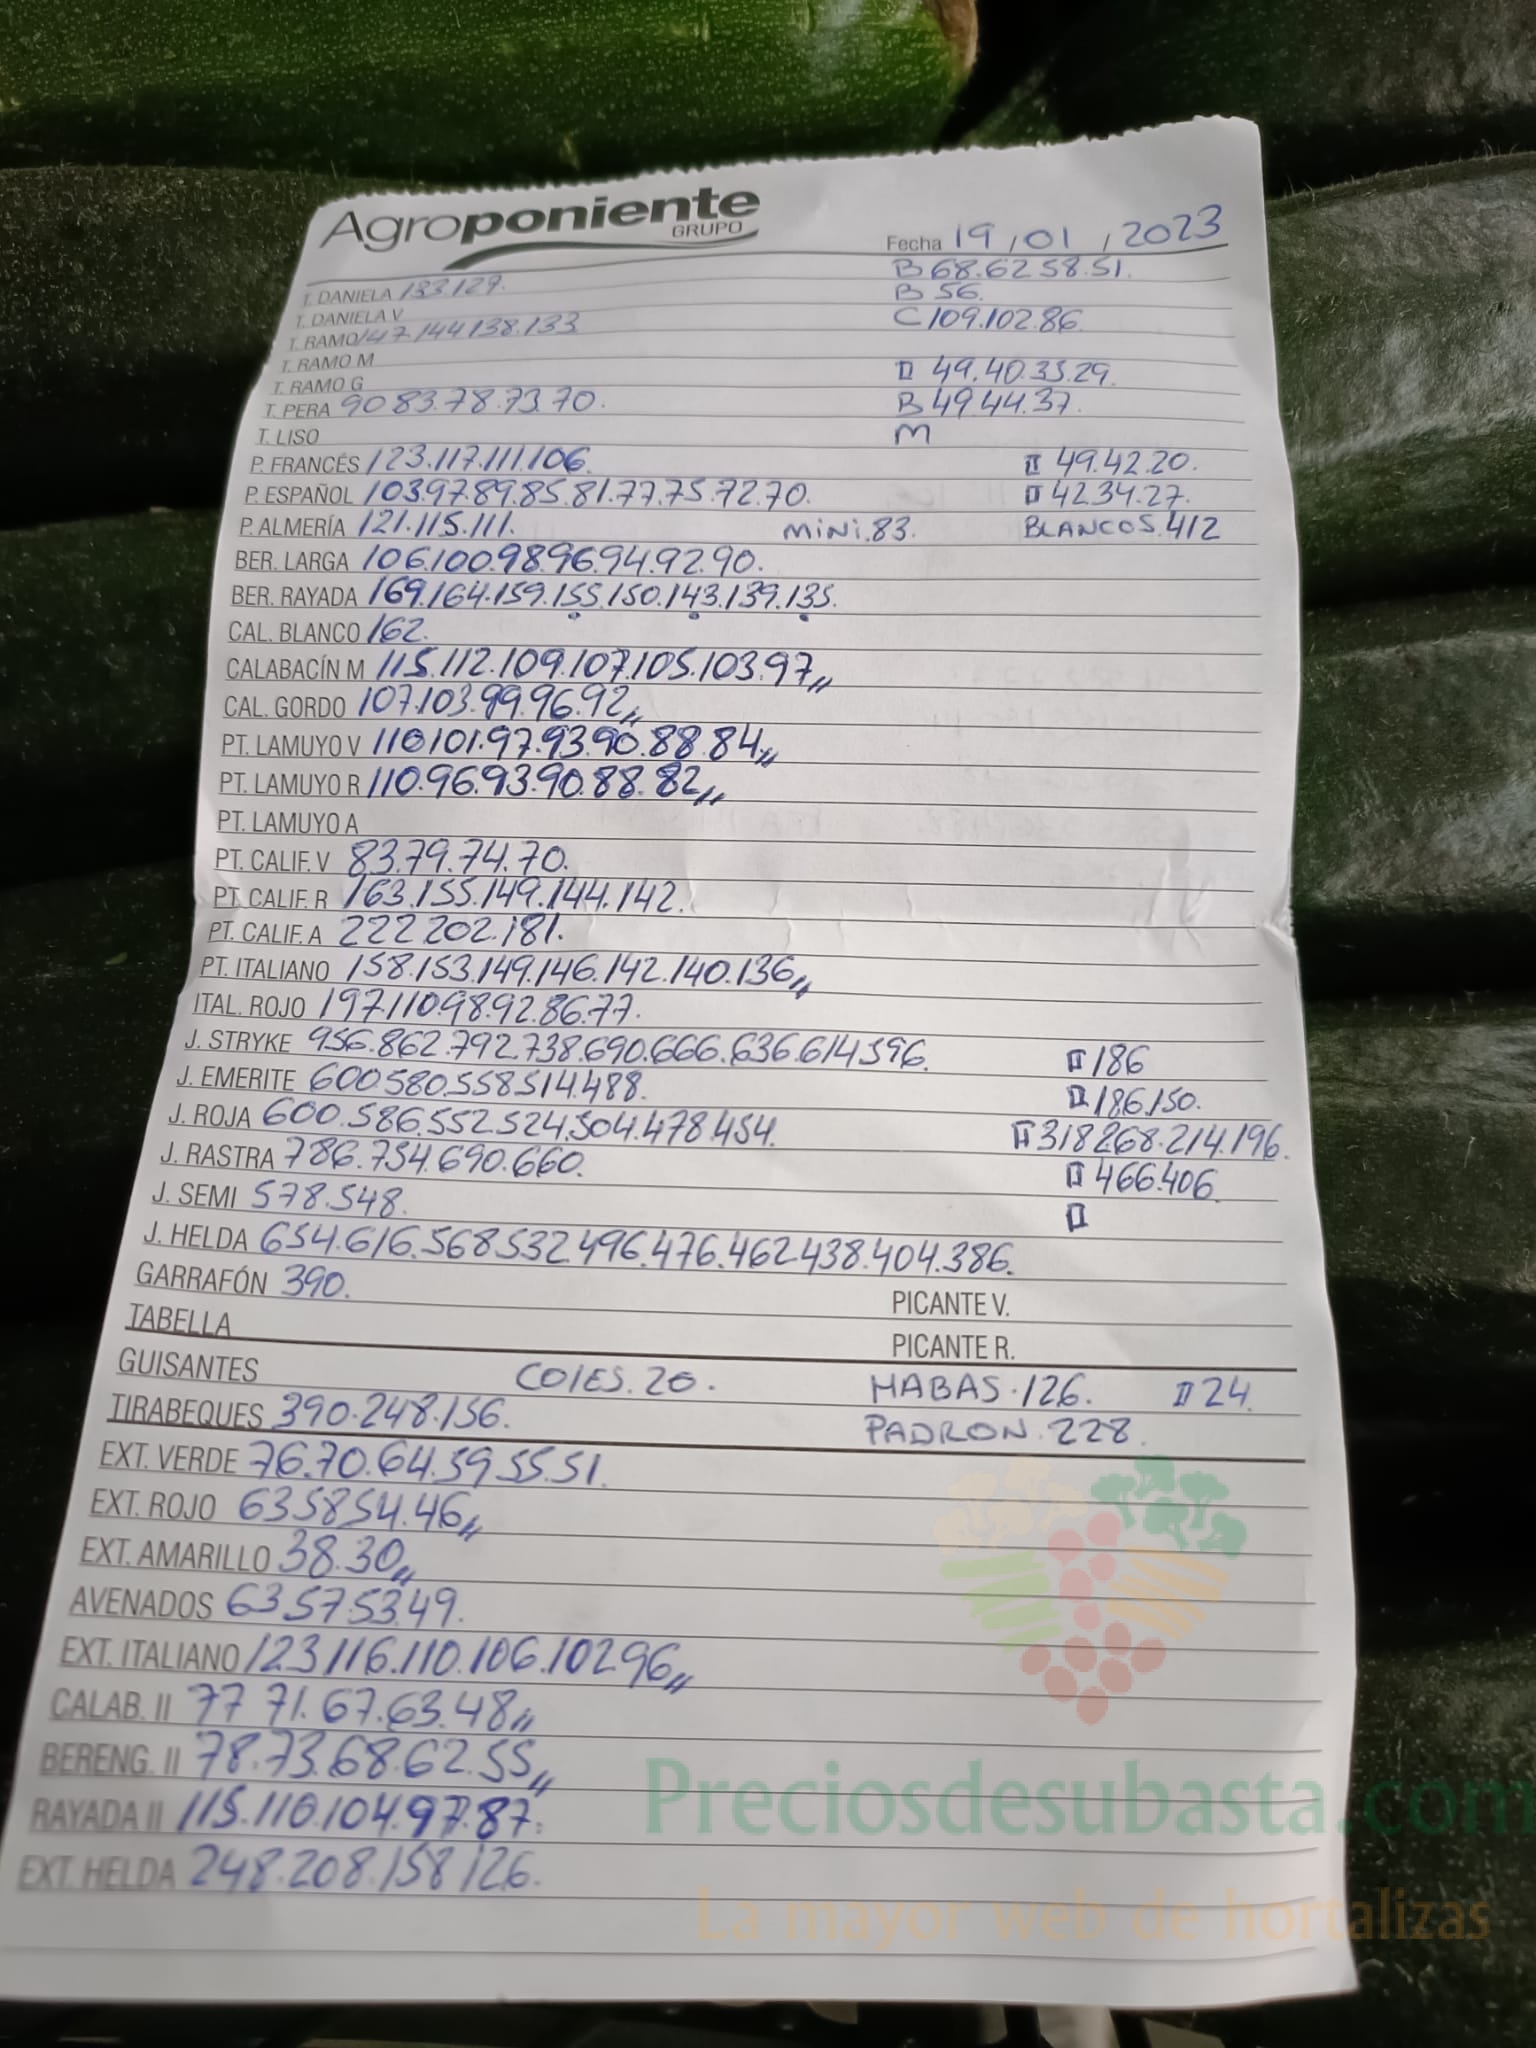 Agroponiente
GRUPO
Fecha 19/01/2023
T. DANIELA 133.129. B 68.62 58.51.
T. DANIELA V B 56.
T. RAMO 147.144 138.133 C 109.102.86.
T. RAMO M
T. RAMO G II 49.40.35.29.
T. PERA 90 83.78.73.70. B 49.44.37.
T. LISO M
P. FRANCÉS 123.117.111.106. II 49.42.20.
P. ESPAÑOL 103.97.89.85.81.77.75.72.70. II 42.34.27.
P. ALMERÍA 121.115.111. MINI.83. BLANCOS.412
BER. LARGA 106.100.98.96.94.92.90.
BER. RAYADA 169.164.159.155.150.143.139.135.
CAL. BLANCO 162.
CALABACÍN M 115.112.109.107.105.103.97,,
CAL. GORDO 107.103.99.96.92,,
PT. LAMUYO V 110 101.97.93.90.88.84,,
PT. LAMUYO R 110.96.93.90.88.82,,
PT. LAMUYO A
PT. CALIF. V 83.79.74.70.
PT. CALIF. R 163.155.149.144.142.
PT. CALIF. A 222 202.181.
PT. ITALIANO 158.153.149.146.142.140.136,,
ITAL. ROJO 197.110.98.92.86.77.
J. STRYKE 956.862.792.738.690.666.636.614.596. II 186
J. EMERITE 600 580.558 514.488. II 186.150.
J. ROJA 600.586.552.524.504.478.454. II 318 268.214.196.
J. RASTRA 786.754.690.660. II 466.406
J. SEMI 578.548. II
J. HELDA 654.616.568.532.496.476.462 438.404.386.
GARRAFÓN 390. PICANTE V.
TABELLA PICANTE R.
GUISANTES COLES.20. HABAS.126. II 24.
TIRABEQUES 390.248.156. PADRON.228.
EXT. VERDE 76.70.64.59 55.51.
EXT. ROJO 63 58 54.46,,
EXT. AMARILLO 38.30,,
AVENADOS 63 57 53 49.
EXT. ITALIANO 123 116.110.106.102 96,,
CALAB. II 77 71.67.63.48,,
BERENG. II 78.73.68.62.55,,
RAYADA II 115.110.104.97.87.
EXT. HELDA 248.208.158 126.
Preciosdesubasta.com
La mayor web de hortalizas